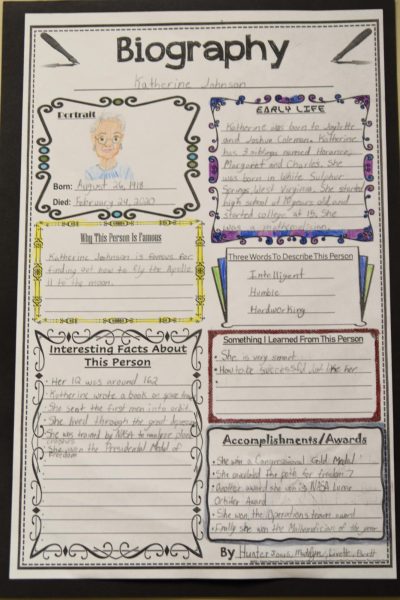 Biography
Katherine Johnson
Portrait
Born: August 26, 1918
Died: February 24, 2020
EARLY LIFE
Katherine was born to Joylette
and Joshua Coleman. Katherine
has 3 siblings named Horance,
Margaret and Charles. She
was born in White Sulphur
Springs, West Virginia. She started
high school at 10 years old and
started college at 15. She
was a
Why This Person Is Famous
Katherine Johnson is famous for
finding out how to fly the Apollo
11 to the moon.
Three Words To Describe This Person
Intelligent
Humble
Hardworking
Interesting Facts About
This Person
Her IQ was around 162
Katherine wrote a book on space
She sent the first men into orbit
She lived through the great depression
She was trained by NASA to
She given the Presidential Medal of
Freedom
Something I Learned From This Person
She is very smart
How to be successful just like her
Accomplishments/Awards
She won a Congressional Gold Medal
She calculated the path for freedom 7
Another award she won is NASA Lunar
Orbiter Award
She won the Operations team award
Finally she won the Mathematician of the year
By Hunter Madilyn,